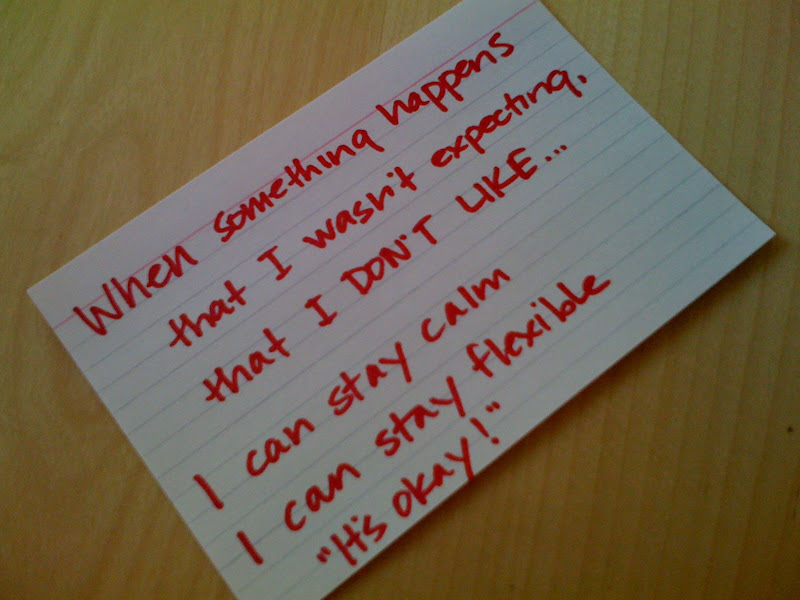 When something happens
that I wasn't expecting,
that I DON'T LIKE...
I can stay calm
I can stay flexible
"It's okay!"